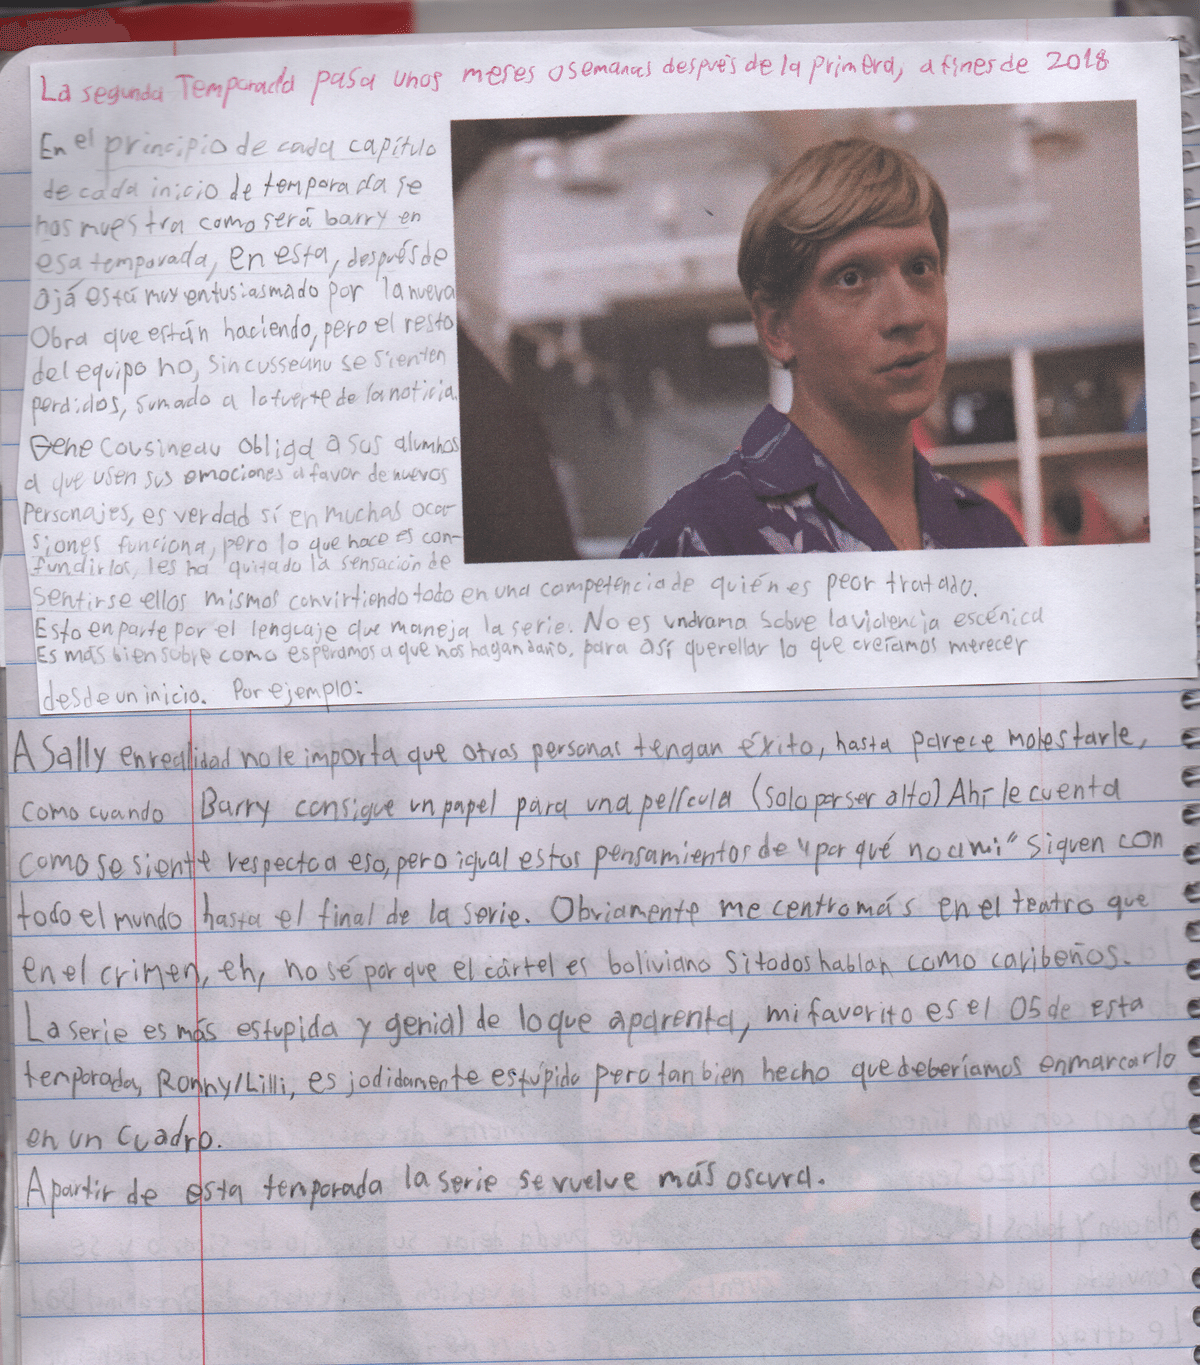 La segunda Temporada pasa unos meses o semanas después de la primera, a fines de 2018
En el principio de cada capítulo
de cada inicio de temporada se
nos muestra como será barry en
esa temporada, en esta, después de
ojá está muy entusiasmado por la nueva
Obra que están haciendo, pero el resto
del equipo no, sin cusseanu se sienten
perdidos, sumado a lo fuerte de la noticia.
Gene Cousineau obliga a sus alumnos
a que usen sus emociones a favor de nuevos
Personajes, es verdad sí en muchas oca-
siones funciona, pero lo que hace es con-
fundirlos, les ha quitado la sensación de
sentirse ellos mismos convirtiendo todo en una competencia de quién es peor tratado.
Esto en parte por el lenguaje que maneja la serie. No es un drama sobre la violencia escénica
Es más bien sobre como esperamos a que nos hagan daño, para así querellar lo que creíamos merecer
desde un inicio. Por ejemplo:
A Sally en realidad no le importa que otras personas tengan éxito, hasta parece molestarle,
como cuando Barry consigue un papel para una película (solo por ser alto) Ahí le cuenta
como se siente respecto a eso, pero igual estos pensamientos de "por qué no a mi" siguen con
todo el mundo hasta el final de la serie. Obviamente me centro más en el teatro que
en el crimen, eh, no sé por que el cártel es boliviano si todos hablan como caribeños.
La serie es más estupida y genial de lo que aparenta, mi favorito es el 05 de esta
temporada, Ronny/Lilli, es jodidamente estúpido pero tan bien hecho que deberíamos enmarcarlo
en un cuadro.
Apartir de esta temporada la serie se vuelve más oscura.